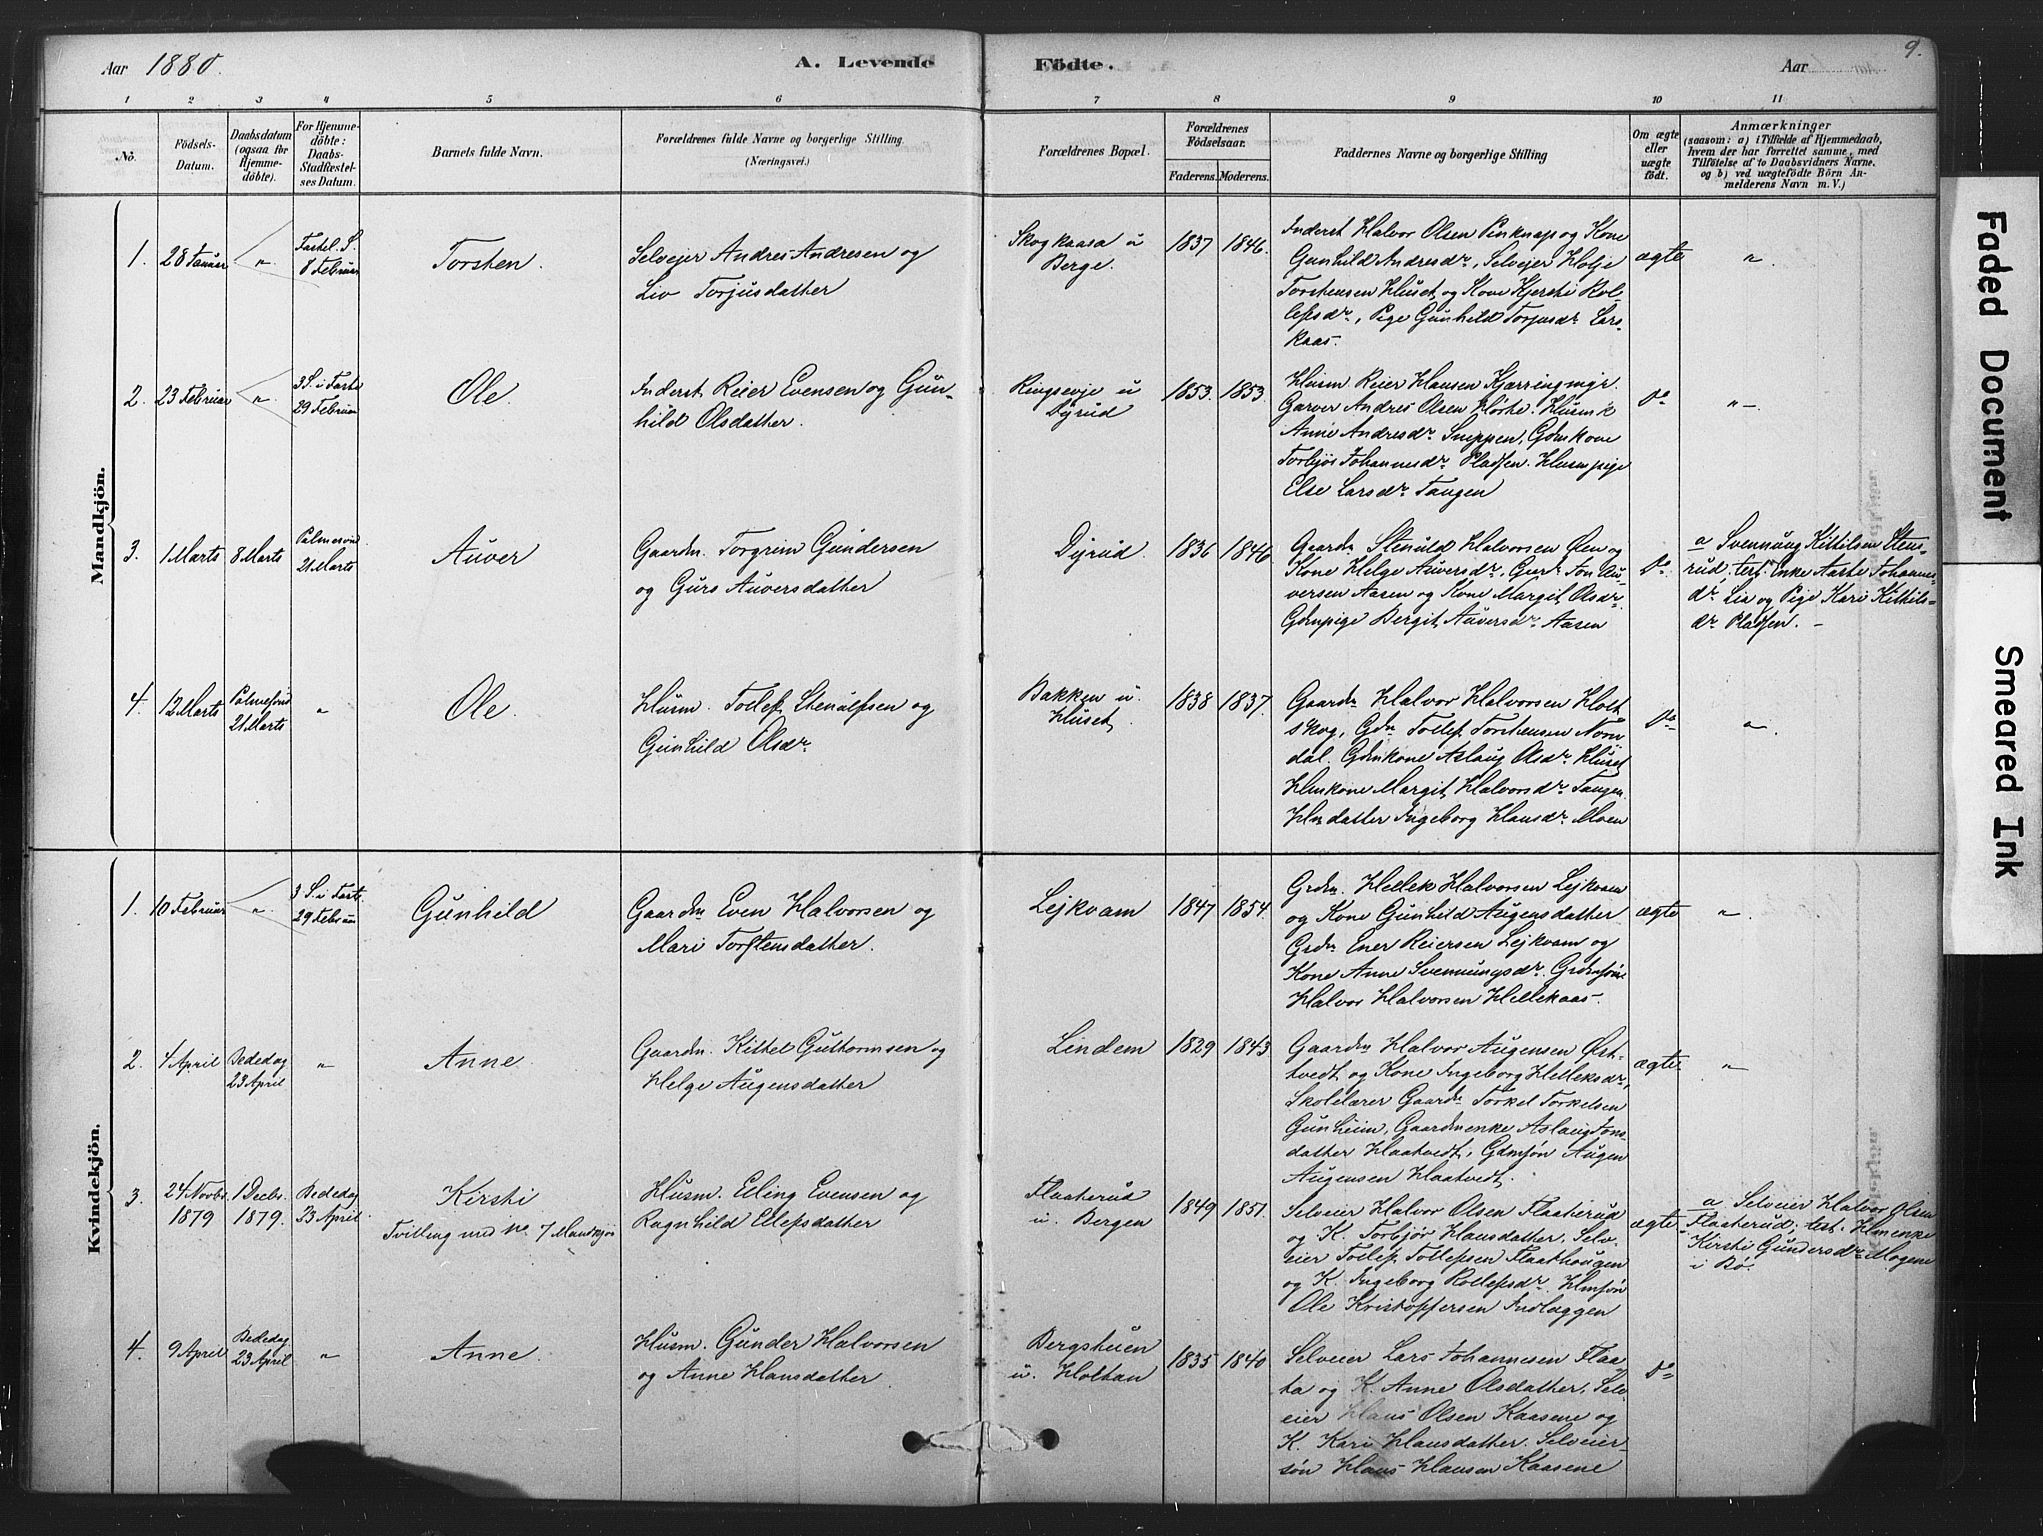 Aar 1880.
A. Levende Födte.
Aar
9.
1 2 3 4 5 6 7 8 9 10 11
No.
Födsels-
Datum.
Daabsdatum
(ogsaa for
Hjemme-
döbte).
For Hjemme-
döbte:
Daabs-
Stadfæstel-
ses Datum.
Barnets fulde Navn.
Forældrenes fulde Navne og borgerlige Stilling
(Næringsvei.)
Forældrenes Bopæl.
Forældrenes
Födselsaar.
Faderens. Moderens.
Faddernes Navne og borgerlige Stilling
Om ægte
eller
uægte
födt.
Anmærkninger
(saasom: a) i Tilfælde af Hjemmedaab,
hvem der har forrettet samme, med
Tilföielse af to Daabsvidners Navne.
og b) ved uægtefödte Börn An-
melderens Navn m. V.)
Mandkjön.
1.
28 Januar
"
Fastel. S.
8 Februar
Torsten.
Selvejer Andres Andresen og
Liv Torjusdatter
Skogkaasa u
Berge.
1837 1846.
Inderst Halvor Olsen Pinknap og Kone
Gunhild Andresdr, Selvejer Hotje
Torstensen Huset og Kone Kjersti Rol-
lefsdr, Pige Gunhild Torjusdr Lars-
kaas.
ægte
"
2.
23 Februar
"
3 S. i Faste
29 Februar
Ole
Inderst Reier Evensen og Gun-
hild Olsdatter.
Ringsevje u
Dyrud
1853. 1853.
Husm. Reier Hansen Kjærringmyr.
Garver Andres Olsen Kløste. Husm k
Anne Andresdr Snippen, Gdmkone
Torbjør Johannesdr Pladsen. Husmpige
Else Larsdr Tangen
Do
"
3.
1 Marts
8 Marts
Palmesønd
21 Marts
Auver
Gaardm. Torgrim Gundersen
og Gurs Auversdatter
Dyrud.
1836 1846
Gaardm Stenuld Halvorsen Øen og
Kone Helge Auversdr, Gaardm Jon Au-
versen Aasen og Kone Margit Olsdr.
Gdmpige Bergit Auversdr Aasen
Do
a Svennung Kittilsen Sten-
rud, test. Enke Aaste Johannes-
dr Lia og Pige Kari Kittils-
dr Pladsen. –
4.
12 Marts
Palmesønd
21 Marts
"
Ole.
Husm. Tollef Stenulfsen og
Gunhild Olsdr
Bakken u.
Huset.
1838 1837.
Gaardm Halvor Halvorsen Holt
skog, Gdm Tollef Torstensen Nørs
dal. Gdmkone Aslaug Olsdr Huset
Hmkone Margit Halvorsdr Tangen.
Hmdatter Ingeborg Hansdr Moen
Do
"
Kvindekjön.
1.
10 Februar
"
3 S. i Faste
29 Februar
Gunhild
Gaardm Even Halvorsen og
Mari Torstensdatter.
Lejkvam
1847 1854.
Grdm. Hellek Halvorsen Lejkvam
og Kone Gunhild Augensdatter
Grdm Ener Reiersen Lejkvam og
Kone Anne Svennungsdr. Grdmsøn
Halvor Halvorsen Hellekaas.
ægte
"
2.
4 April
Bededag
23 April
"
Anne
Gaardm. Kittel Guttormsen og
Helge Augensdatter
Lindem
1829 1843
Gaardm Halvor Augensen Øst-
tvedt og Kone Ingeborg Helleksdr,
Skolelærer Gaardm Torkel Torkelsen
Gunheim, Gaardmenke Aslaug Jons-
datter Haatvedt, Gdmsøn Augen
Augensen Haatvedt.
ægte
"
3.
24 Novbr.
1879
1 Decbr.
1879.
Bededag
23 April.
Kirsti
Tvilling med No 7 Mandkjøn
Husm. Elling Evensen og
Ragnhild Ellefsdatter
Flaaterud
u. Bergen
1849 1851.
Selveier Halvor Olsen Flaaterud
og K. Torbjør Hansdatter. Selv-
eier Tollef Tollefsen Flaathaugen
og K. Ingeborg Rollefsdr. Hmsøn
Ole Kristoffersen Indlæggen
ægte
a Selveier Halvor Olsen
Flaaterud; test. Hmenke
Kirsti Gundersdr Mogene
i Bø.
4.
9 April
Bededag
23 April
"
Anne.
Husm. Gunder Halvorsen
og Anne Hansdatter
Bergstuen
u. Holtan
1835 1840
Selveier Lars Johannesen Flaa-
ta og K. Anne Olsdatter. Selv
eier Hans Olsen Kaasene og
K. Kari Hansdatter. Selveier-
søn Hans Hansen Kaasene
Do
Faded Document
Smeared Ink